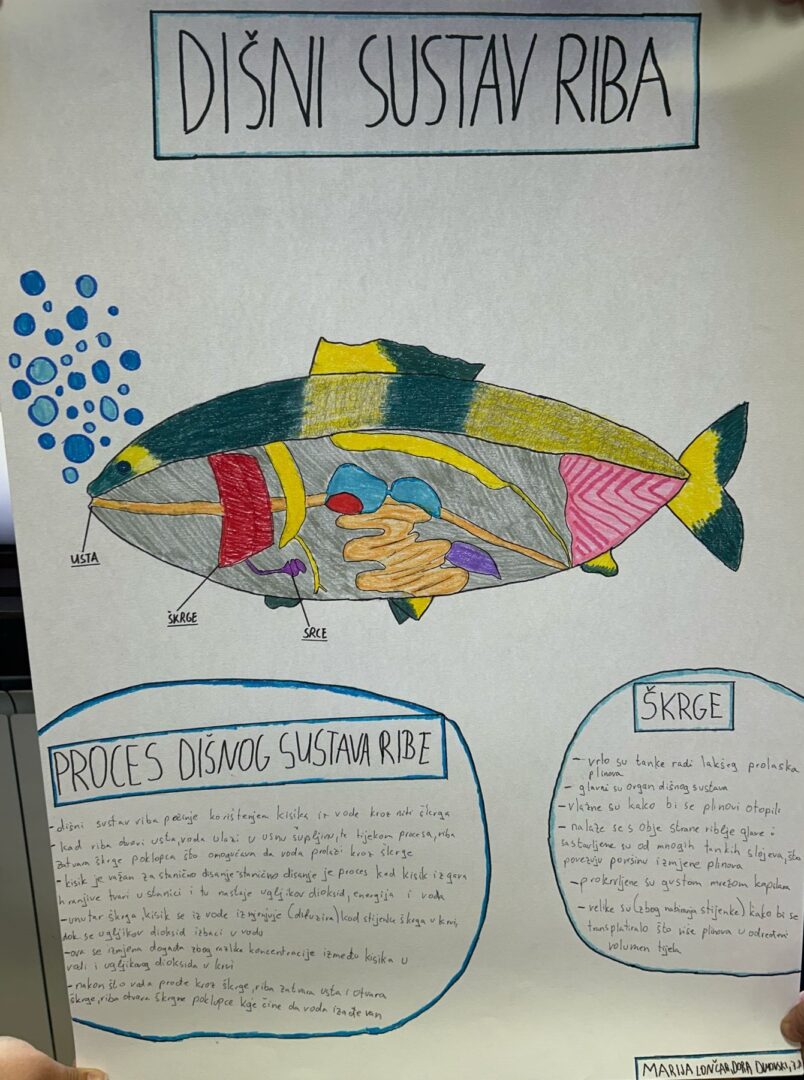 DIŠNI SUSTAV RIBA
USTA
ŠKRGE
SRCE
PROCES DIŠNOG SUSTAVA RIBE
- dišni sustav riba počinje korištenjem kisika iz vode kroz niti škrga
- kad riba otvori usta, voda ulazi u usnu šupljinu, te tijekom procesa, riba
zatvara škrge poklopca što omogućava da voda prolazi kroz škrge
- kisik je važan za stanično disanje, stanično disanje je proces kad kisik izgara
hranjive tvari u stanici i tu nastaje ugljikov dioksid, energija i voda
- unutar škrga, kisik se iz vode izmjenjuje (difuzira) kod stijenke škrga u krvi,
dok se ugljikov dioksid izbaci u vodu
- ova se izmjena događa zbog razlike koncentracije između kisika u
vodi i ugljikovog dioksida u krvi
- nakon što voda prođe kroz škrge, riba zatvara usta i otvara
škrge, riba otvara škržne poklopce koje čine da voda izađe van
ŠKRGE
- vrlo su tanke radi lakšeg prolaska
plinova
- glavni su organ dišnog sustava
- vlažne su kako bi se plinovi otopili
- nalaze se s obje strane riblje glave i
sastavljene su od mnogih tankih slojeva, što
povezuju površinu izmjene plinova
- prokrvljene su gustom mrežom kapilara
- velike su (zbog nabiranja stijenke) kako bi se
transplatiralo što više plinova u određeni
volumen tijela
MARIJA LONČAR, DORA